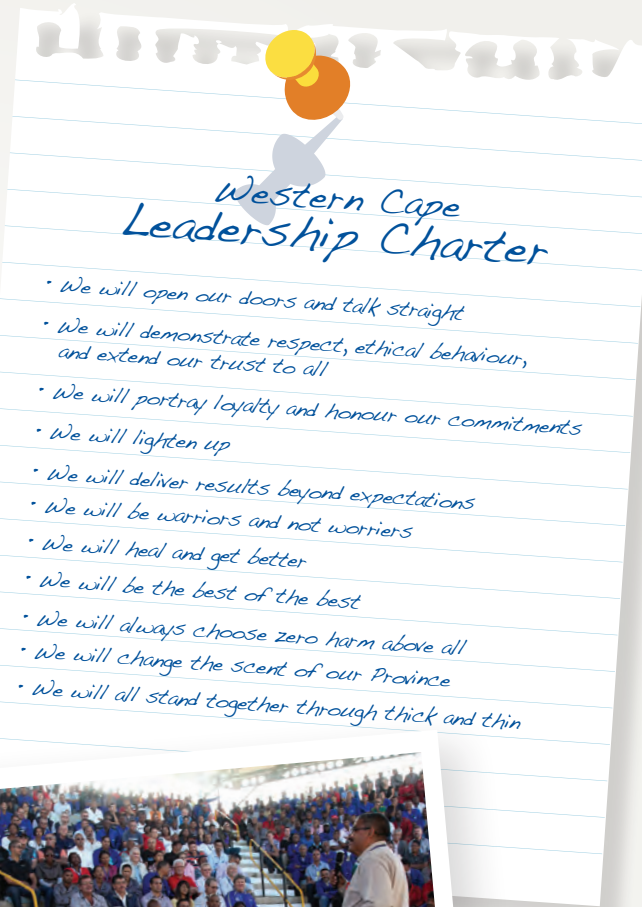 Western Cape
Leadership Charter
• We will open our doors and talk straight
• We will demonstrate respect, ethical behaviour,
and extend our trust to all
• We will portray loyalty and honour our commitments
• We will lighten up
• We will deliver results beyond expectations
• We will be warriors and not worriers
• We will heal and get better
• We will be the best of the best
• We will always choose zero harm above all
• We will change the scent of our Province
• We will all stand together through thick and thin